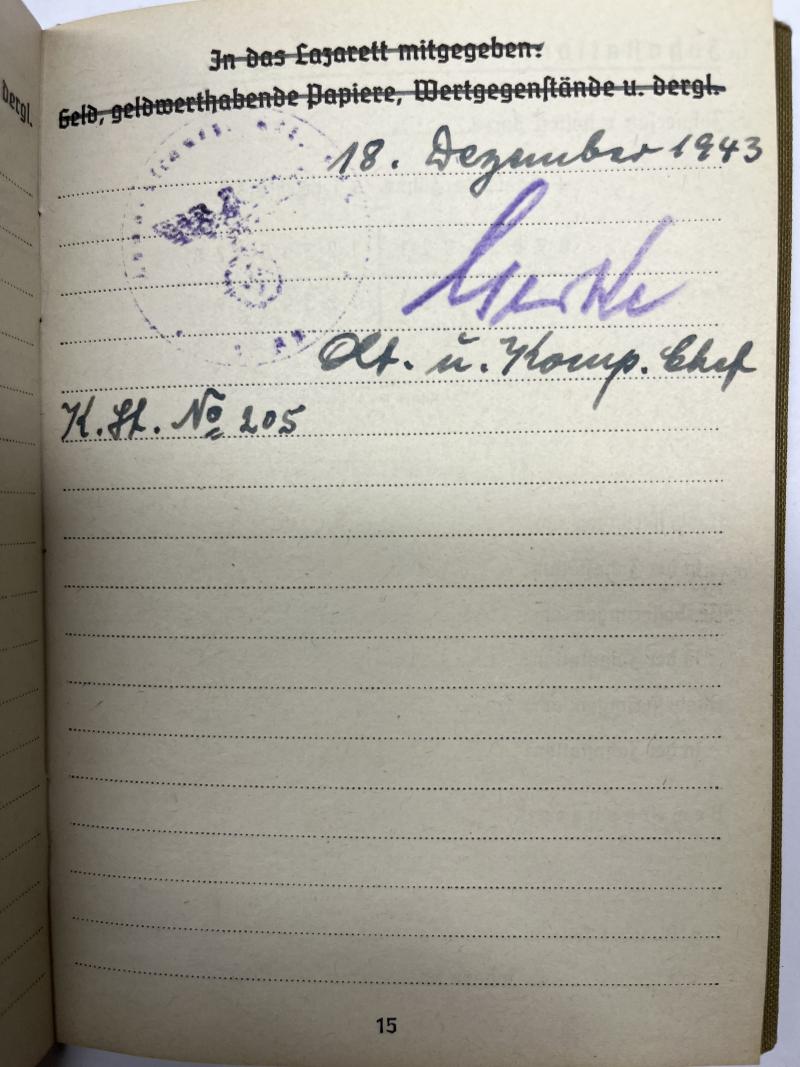 dergl.
In das Lazarett mitgegeben:
Geld, geldwerthabende Papiere, Wertgegenstände u. dergl.
18. Dezember 1943
Olt. u. Komp. Chef
K. St. No 205
15